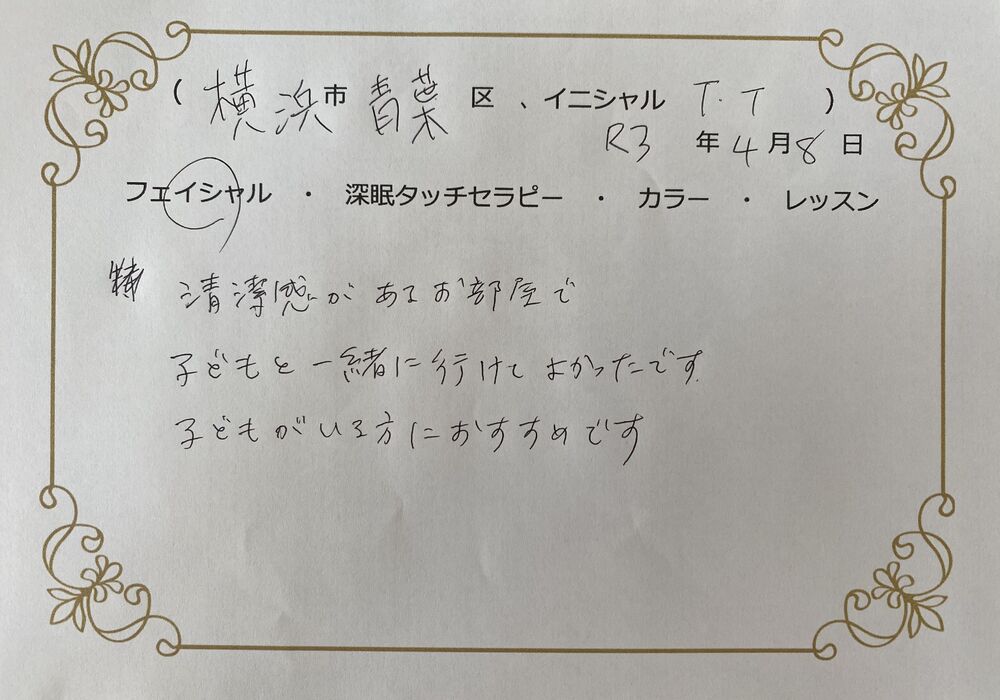 ( 横浜市 青葉 区 、イニシャル T.T )
R3 年 4 月 8 日
フェイシャル ・ 深眠タッチセラピー ・ カラー ・ レッスン
清潔感があるお部屋で
子どもと一緒に行けてよかったです。
子どもがいる方におすすめです